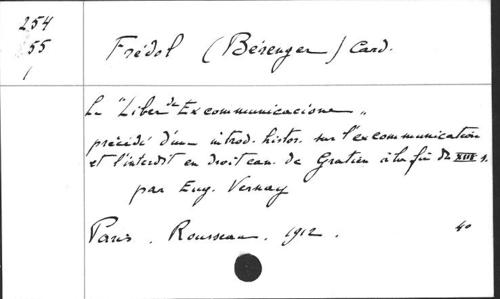 254
55
1
Frédol (Bérenger) Card.
Le "Liber de Excommunicacione"
précédé d'une introd. histor. sur l'excommunication
et l'interdit en droit can. de Gratien à la fin du XIII s.
par Eug. Vernay
Paris. Rousseau. 1912. 4o